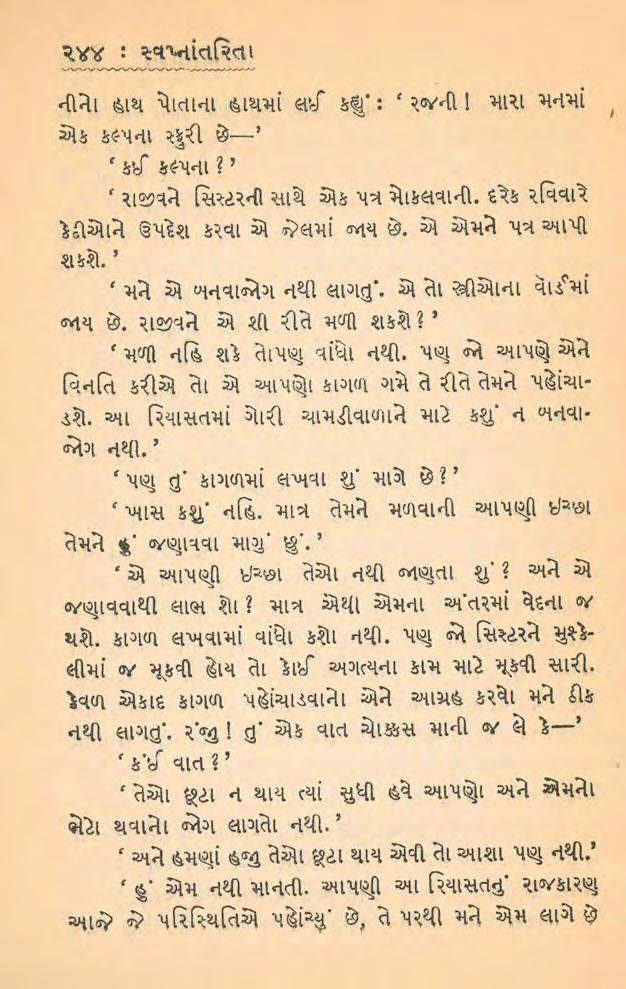 ૨૪૪ : સ્વપ્નાંતરિતા
નીનો હાથ પોતાના હાથમાં લઈ કહ્યું : ‘ રજની ! મારા મનમાં
એક કલ્પના સ્ફુરી છે—’
‘ કઈ કલ્પના ? ’
‘ રાજીવને સિસ્ટરની સાથે એક પત્ર મોકલવાની. દરેક રવિવારે
કેદીઓને ઉપદેશ કરવા એ જેલમાં જાય છે. એ એમને પત્ર આપી
શકશે. ’
‘ મને એ બનવાજોગ નથી લાગતું. એ તો સ્ત્રીઓના વૉર્ડમાં
જાય છે. રાજીવને એ શી રીતે મળી શકશે ? ’
‘ મળી નહિ શકે તોપણ વાંધો નથી. પણ જો આપણે એને
વિનતિ કરીએ તો એ આપણો કાગળ ગમે તે રીતે તેમને પહોંચા-
ડશે. આ રિયાસતમાં ગોરી ચામડીવાળાને માટે કશું ન બનવા-
જોગ નથી. ’
‘ પણ તું કાગળમાં લખવા શું માગે છે ? ’
‘ ખાસ કશું નહિ. માત્ર તેમને મળવાની આપણી ઇચ્છા
તેમને હું જણાવવા માગું છું. ’
‘ એ આપણી ઇચ્છા તેઓ નથી જાણતા શું ? અને એ
જણાવવાથી લાભ શો ? માત્ર એથી એમના અંતરમાં વેદના જ
થશે. કાગળ લખવામાં વાંધો કશો નથી. પણ જો સિસ્ટરને મુશ્કે-
લીમાં જ મૂકવી હોય તો કોઈ અગત્યના કામ માટે મૂકવી સારી.
કેવળ એકાદ કાગળ પહોંચાડવાનો એને આગ્રહ કરવો મને ઠીક
નથી લાગતું. રંજુ ! તું એક વાત ચોક્કસ માની જ લે કે—’
‘ કંઈ વાત ? ’
‘ તેઓ છૂટા ન થાય ત્યાં સુધી હવે આપણો અને એમનો
ભેટો થવાનો જોગ લાગતો નથી. ’
‘ અને હમણાં હજુ તેઓ છૂટા થાય એવી તો આશા પણ નથી.’
‘ હું એમ નથી માનતી. આપણી આ રિયાસતનું રાજકારણ
આજે જે પરિસ્થિતિએ પહોંચ્યું છે, તે પરથી મને એમ લાગે છે